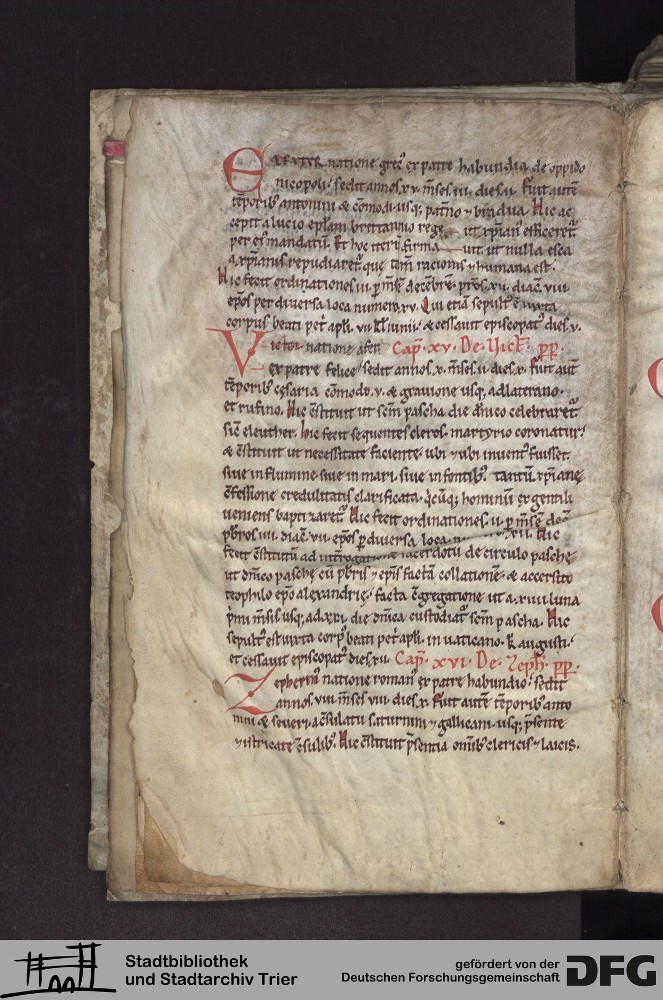 ELEVTER natione grec᷒ ex patre habundia. de oppido
nicopoli. sedit annos. xv. m̅ses. iii. dies. ii. fuit aute̅
te̅porib᷒ antonini & co̅modi. usq; pat̅no ⁊ bradua. Hic ac
cepit a lucio ep̅lam brittannio rege ut xp̅ian᷒ efficeret᷑
per ei᷒ mandatu̅. Et hoc iteru̅ firma uit ut nulla esca
a xp̅ianis repudiaret᷑. que tam̅ racionis ⁊ humana est.
Hic fecit ordinationes. iii. p m̅se̅ dece̅bre̅. pr̅os. xii. diac̅. viii.
ep̅os per diversa loca numero. xv. Qui etia̅ sepult᷒ e̅ iuxta
corpus beati pet̅ ap̅li. vii. kl̅ iunii. & cessauit episcopat᷒ dies. v.
Victor natione afer. Cap̅. xv. De Vict̅. pp̅.
ex patre felice. sedit annos. x. m̅ses. ii. dies. x. fuit aut̅
te̅porib᷒ cesaria co̅modo. v. & gravione usq; ad laterano.
et rufino. Hic c̅stituit ut sc̅m pascha die d̅nico celebraret᷑
sic̅ eleuther. hic fecit sequentes cleros. martyrio coronatur.
& c̅stituit ut necessitate faciente ubi ⁊ ubi inuent᷒ fuisset.
siue in flumine. siue in mari. siue in fontib᷒. tantu̅. xp̅iane
c̅fessione credulitatis clarificata. q̅cu̅q; hominu̅ ex gentili
ueniens baptizaret᷑. Hic fecit ordinationes. ii. p m̅se̅ dec̅
p̅bros. iiii. diac̅. vii. ep̅os p diuersa loca xii. Hic
fecit c̅stitutu̅ ad interrogatione sacerdotu̅ de circulo pasche
ut d̅nico pasche cu̅ p̅bris ⁊ ep̅is facta̅ collatione̅. & accersito
teophilo ep̅o alexandrie. facta c̅gregatione ut a. xiiii. luna
p̅mi m̅sis usq; ad. xxi. die d̅nica custodiat᷑ sc̅m pascha. Hic
sepult᷒ est iuxta corp᷒ beati pet̅ ap̅li. in uaticano. k̅. augusti.
et cessauit episcopat᷒ dies. xii. Cap̅. xvi. De Zeph̅. pp̅.
Zepherin᷒ natione roman᷒ ex patre habundio. sedit
annos. viii. m̅ses. vii. dies. x. fuit aute̅ te̅porib᷒ anto
nini & seueri. a c̅sulatu saturnini ⁊ gallicani. usq; p̅sente
⁊ istricate c̅sulib᷒. Hic c̅stituit p̅sentia om̅ib᷒ clericis ⁊ laicis.
Stadtbibliothek
und Stadtarchiv Trier
gefördert von der
Deutschen Forschungsgemeinschaft
DFG